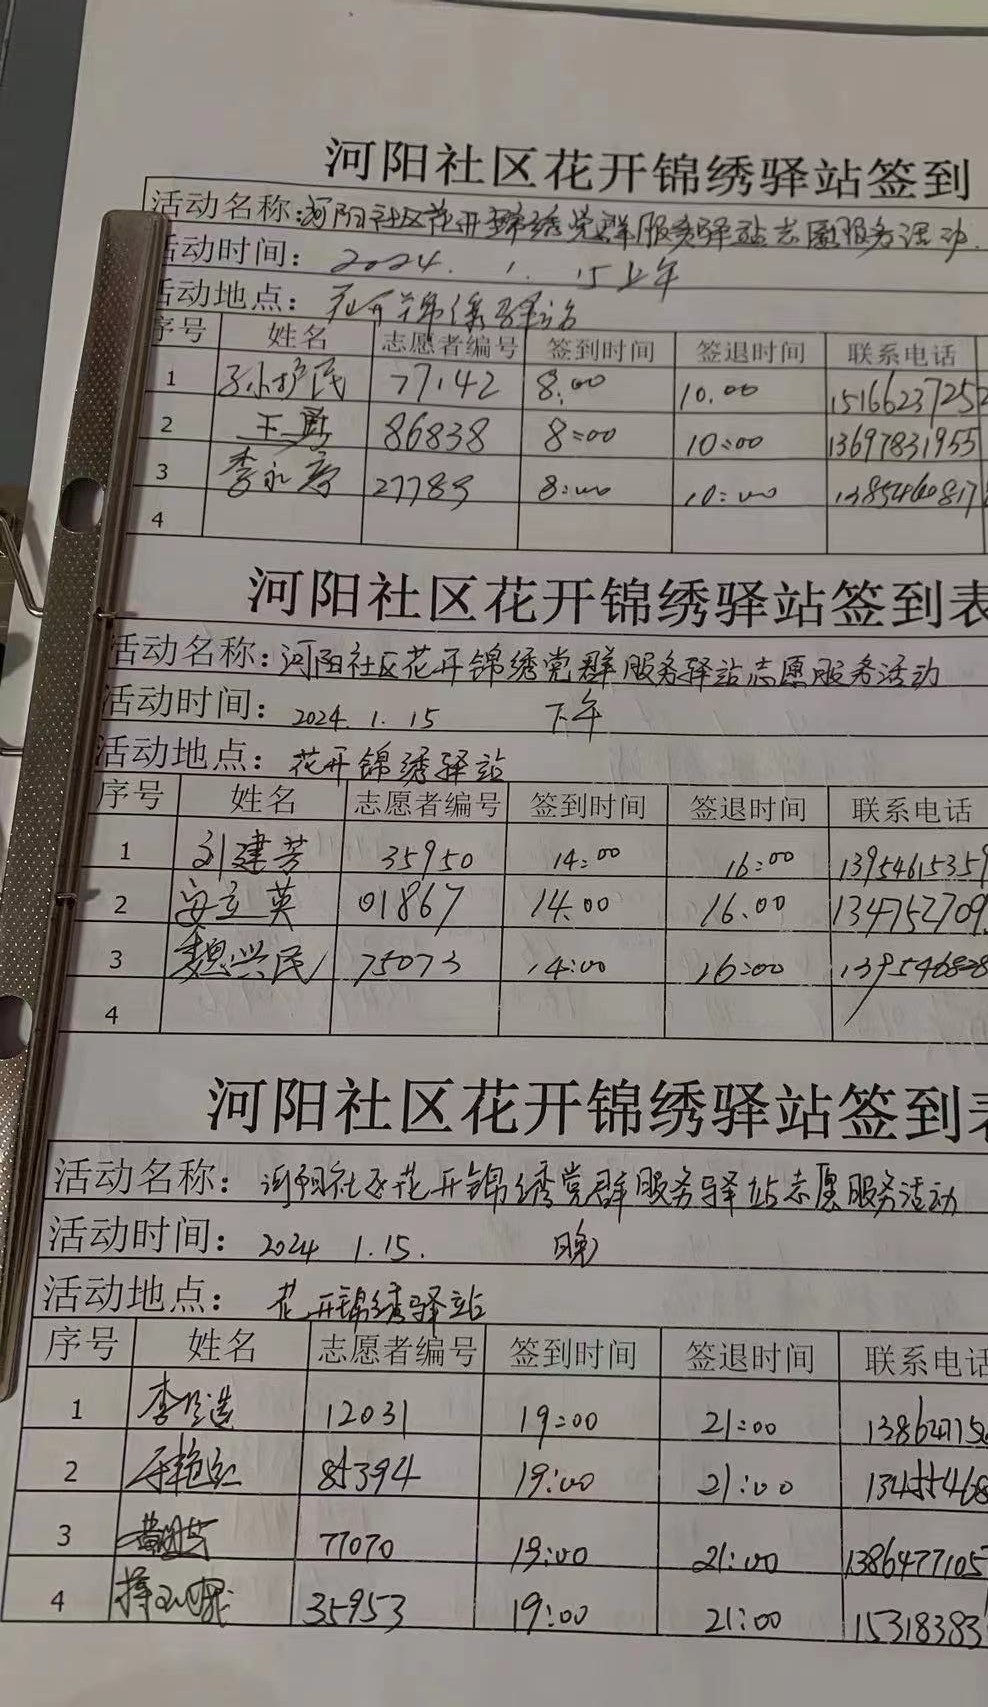 河阳社区花开锦绣驿站签到
活动名称:河阳社区花开锦绣党群服务驿站志愿服务活动.
活动时间: 2024. 1. 15上午
活动地点: 花开锦绣驿站
序号 姓名 志愿者编号 签到时间 签退时间 联系电话
1 77142 8:00 10.00 1516623725
2 王勇 86838 8:00 10:00 13697831955
3 李永 27789 8:00 10:00 1385460817
4
河阳社区花开锦绣驿站签到表
活动名称:河阳社区花开锦绣党群服务驿站志愿服务活动
活动时间: 2024. 1. 15 下午
活动地点: 花开锦绣驿站
序号 姓名 志愿者编号 签到时间 签退时间 联系电话
1 刘建芳 35950 14:00 16:00 1395461535
2 安立英 01867 14:00 16.00 134752709
3 魏兴民 75073 14:00 16:00 139546828
4
河阳社区花开锦绣驿站签到表
活动名称: 河阳社区花开锦绣党群服务驿站志愿服务活动
活动时间: 2024 1.15. 晚
活动地点: 花开锦绣驿站
序号 姓名 志愿者编号 签到时间 签退时间 联系电话
1 12031 19:00 21:00 138647150
2 85394 19:00 21:00 13455468
3 77070 19:00 21:00 1386477105
4 35953 19:00 21:00 15318383